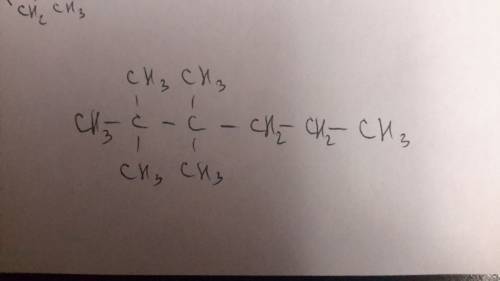 CH₂ CH₃
CH₃ CH₃
CH₃ – C – C – CH₂ – CH₂ – CH₃
CH₃ CH₃